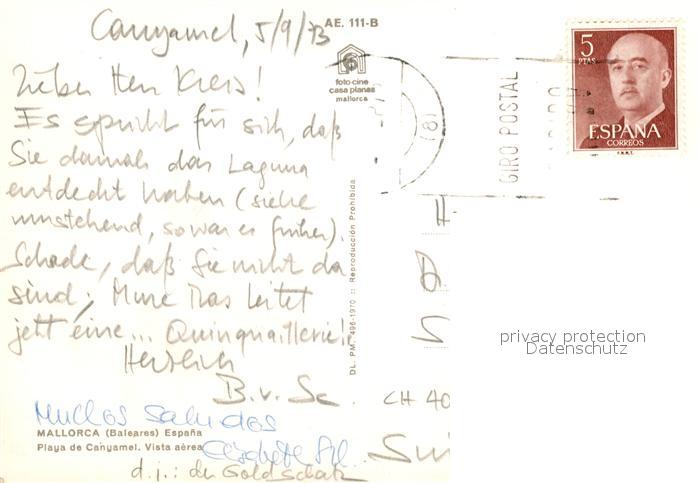 AE. 111-B
Canyamel, 5/9/73
foto-cine
casa planas
mallorca
Lieber Herr Kreis!
Es spricht für sich, daß
Sie damals das Laguna
entdeckt haben (siehe
umstehend, so war es früher).
Schade, daß Sie nicht da
sind, leitet
jetzt eine... Quinquaillerie!
Herzlich
B. v. Sc.
Muchos saludos
MALLORCA (Baleares) España
Playa de Canyamel. Vista aérea
d.j.: der Goldschatz
DL. PM. 496-1970 :: Reproducción Prohibida
GIRO POSTAL
5
PTAS
ESPAÑA
CORREOS
F.N.M.T.
H
CH 40
Sui
privacy protection
Datenschutz